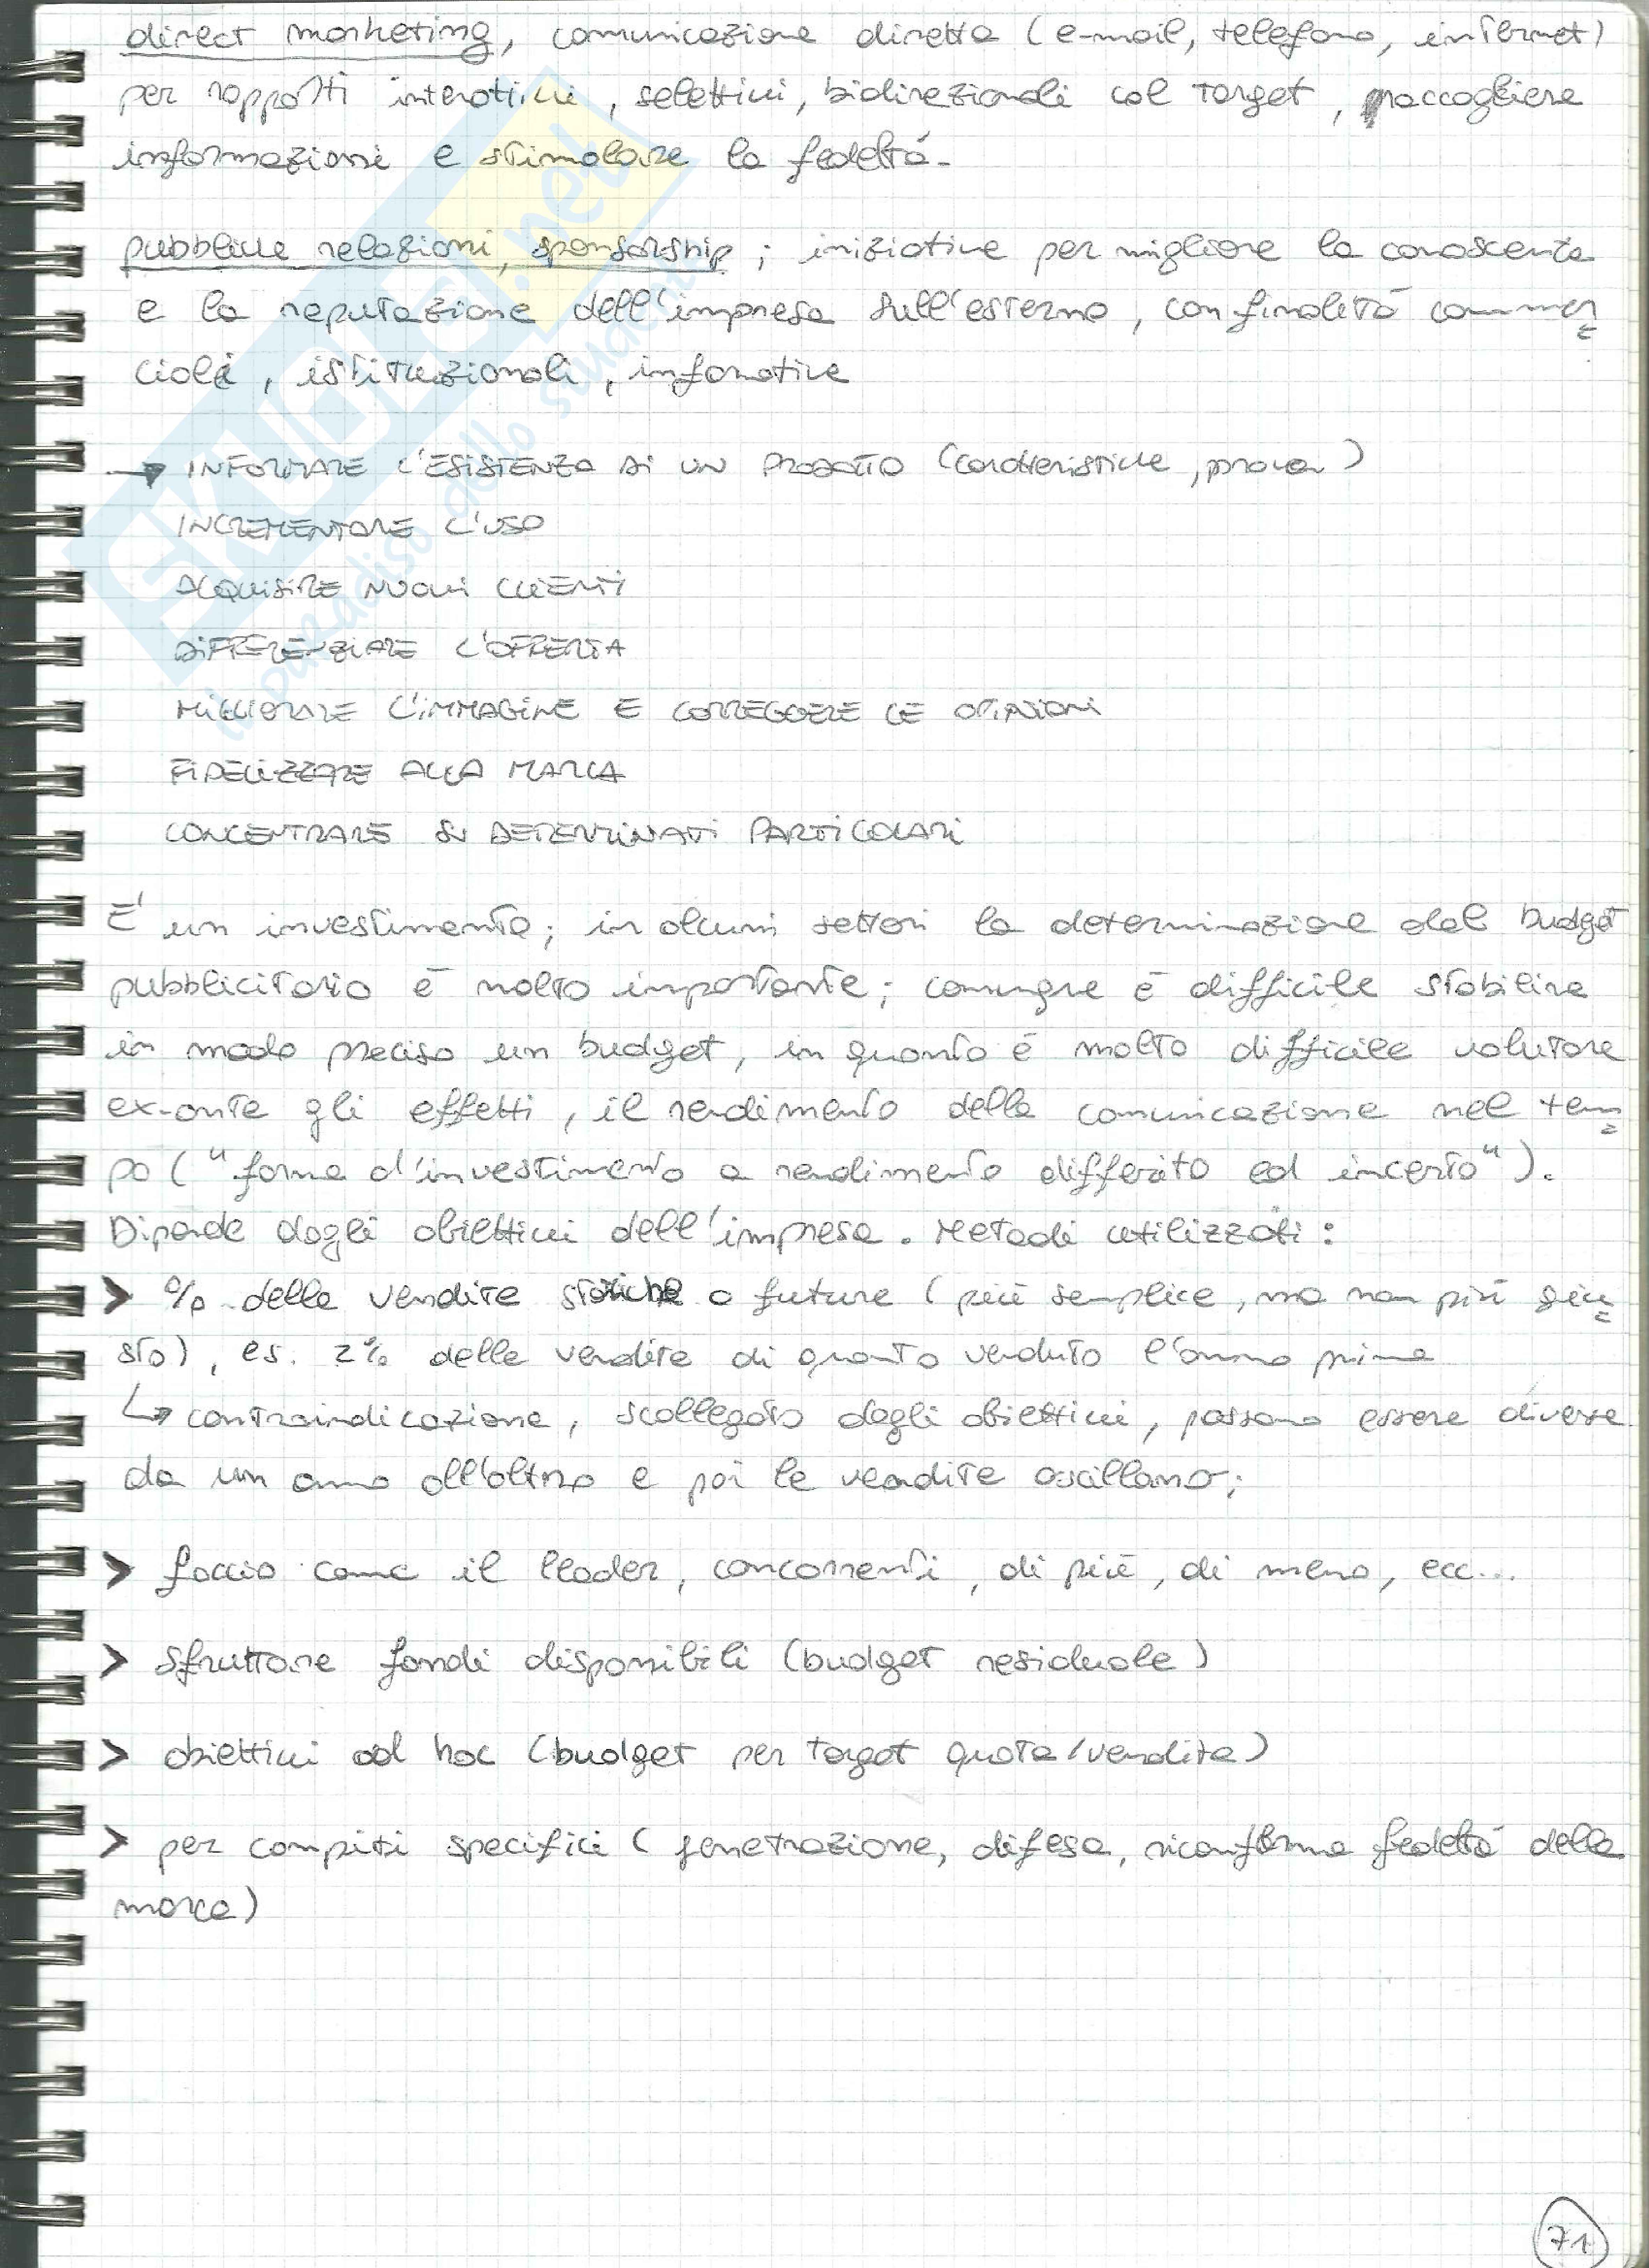 direct marketing, comunicazione diretta (e-mail, telefono, internet)
per rapporti interattivi, selettivi, bidirezionali col target, raccogliere
informazioni e stimolare la fedeltà.
pubbliche relazioni, sponsorship; iniziative per migliore la conoscenza
e la reputazione dell'impresa sull'esterno, con finalità commer=
ciali, istituzionali, infomative
→ INFORMARE L'ESISTENZA DI UN PRODOTTO (caratteristiche, prova)
INCREMENTARE L'USO
ACQUISIRE NUOVI CLIENTI
DIFFERENZIARE L'OFFERTA
MIGLIORARE L'IMMAGINE E CORREGGERE LE OPINIONI
FIDELIZZARE ALLA MARCA
CONCENTRARE SU DETERMINATI PARTICOLARI
E' un investimento; in alcuni settori la determinazione del budget
pubblicitario è molto importante; comunque è difficile stabilire
in modo preciso un budget, in quanto è molto difficile valutare
ex-ante gli effetti, il rendimento della comunicazione nel tem=
po ("forma d'investimento a rendimento differito ed incerto").
Dipende dagli obiettivi dell'impresa. Metodi utilizzati:
> % delle vendite storiche o future (più semplice, ma non più giu=
sto), es. 2% delle vendite di quanto venduto l'anno prima
↳ controindicazione, scollegato dagli obiettivi, possono essere diverse
da un anno all'altro e poi le vendite oscillano;
> faccio come il leader, concorrenti, di più, di meno, ecc...
> sfruttare fondi disponibili (budget residuale)
> obiettivi ad hoc (budget per target quota/vendita)
> per compiti specifici (penetrazione, difesa, riconferma fedeltà della
marca)
71
SKUOLA.net
il paradiso dello studente